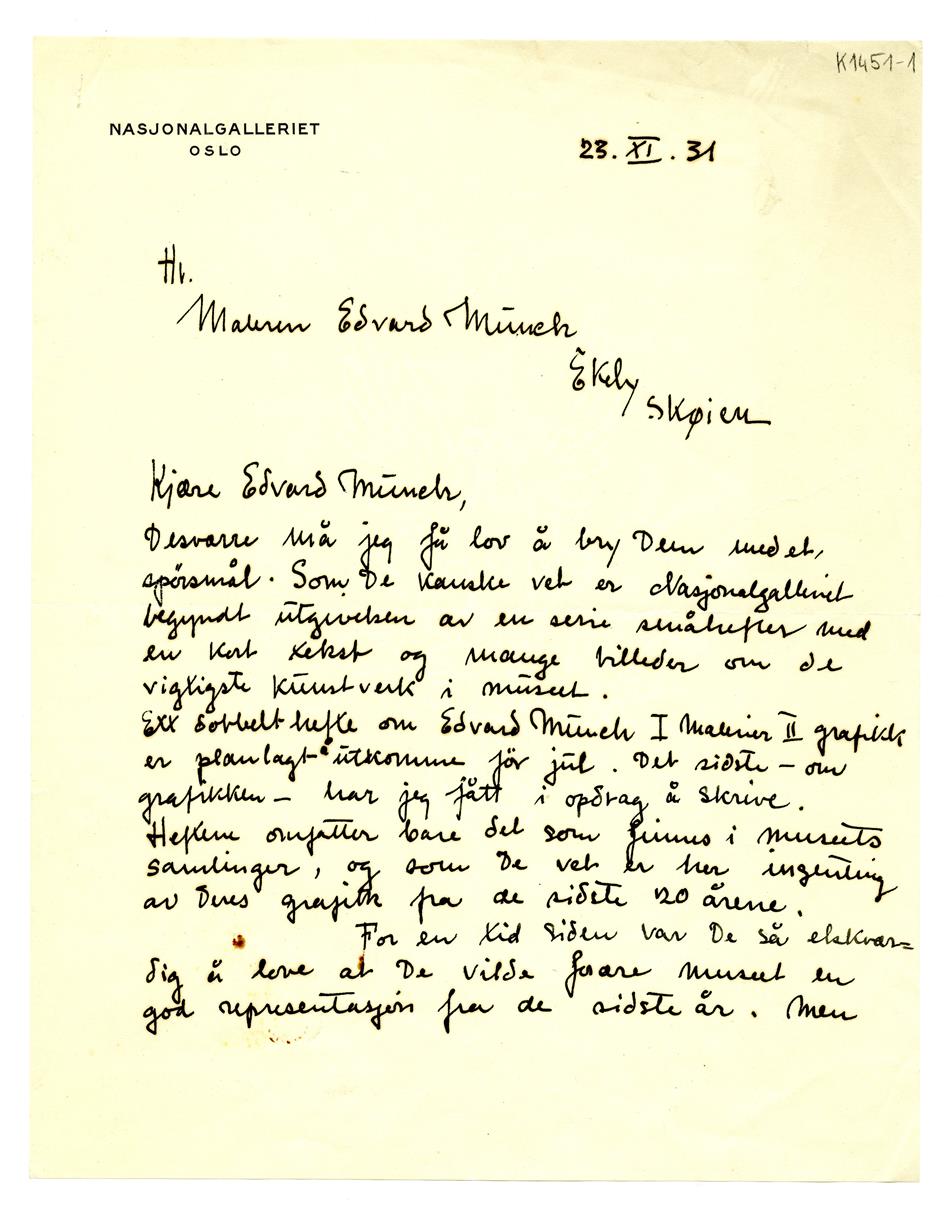 K1451-1
NASJONALGALLERIET
OSLO
23. XI. 31
Hr.
Maleren Edvard Munch
Ekely
Skøien
Kjære Edvard Munch,
Desværre må jeg få lov å bry Dem med et
spörsmål. Som De kanske vet er Nasjonalgalleriet
begyndt utgivelsen av en serie småhefter med
en kort tekst og mange billeder om de
vigtigste kunstverk i museet.
Ett dobbelthefte om Edvard Munch I Malerier II grafikk
er planlagt å utkomme för jul. Det sidste – om
grafikken – har jeg fått i opdrag å skrive.
Heftene omfatter bare det som finnes i museets
samlinger, og som De vet er her ingenting
av Deres grafikk fra de sidste 20 årene.
For en tid siden var De så elskvær=
dig å love at De vilde forære museet en
god representasjon fra de sidste år. Men